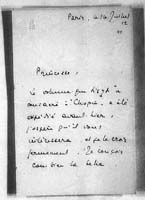 Paris, le 16 Juillet
12
Princesse,
Le volume que Liszt a
consacré à Chopin, a été
expédié avant hier,
j'espère qu'il vous
intéressera et je le crois
fermement. Je conçois
combien la